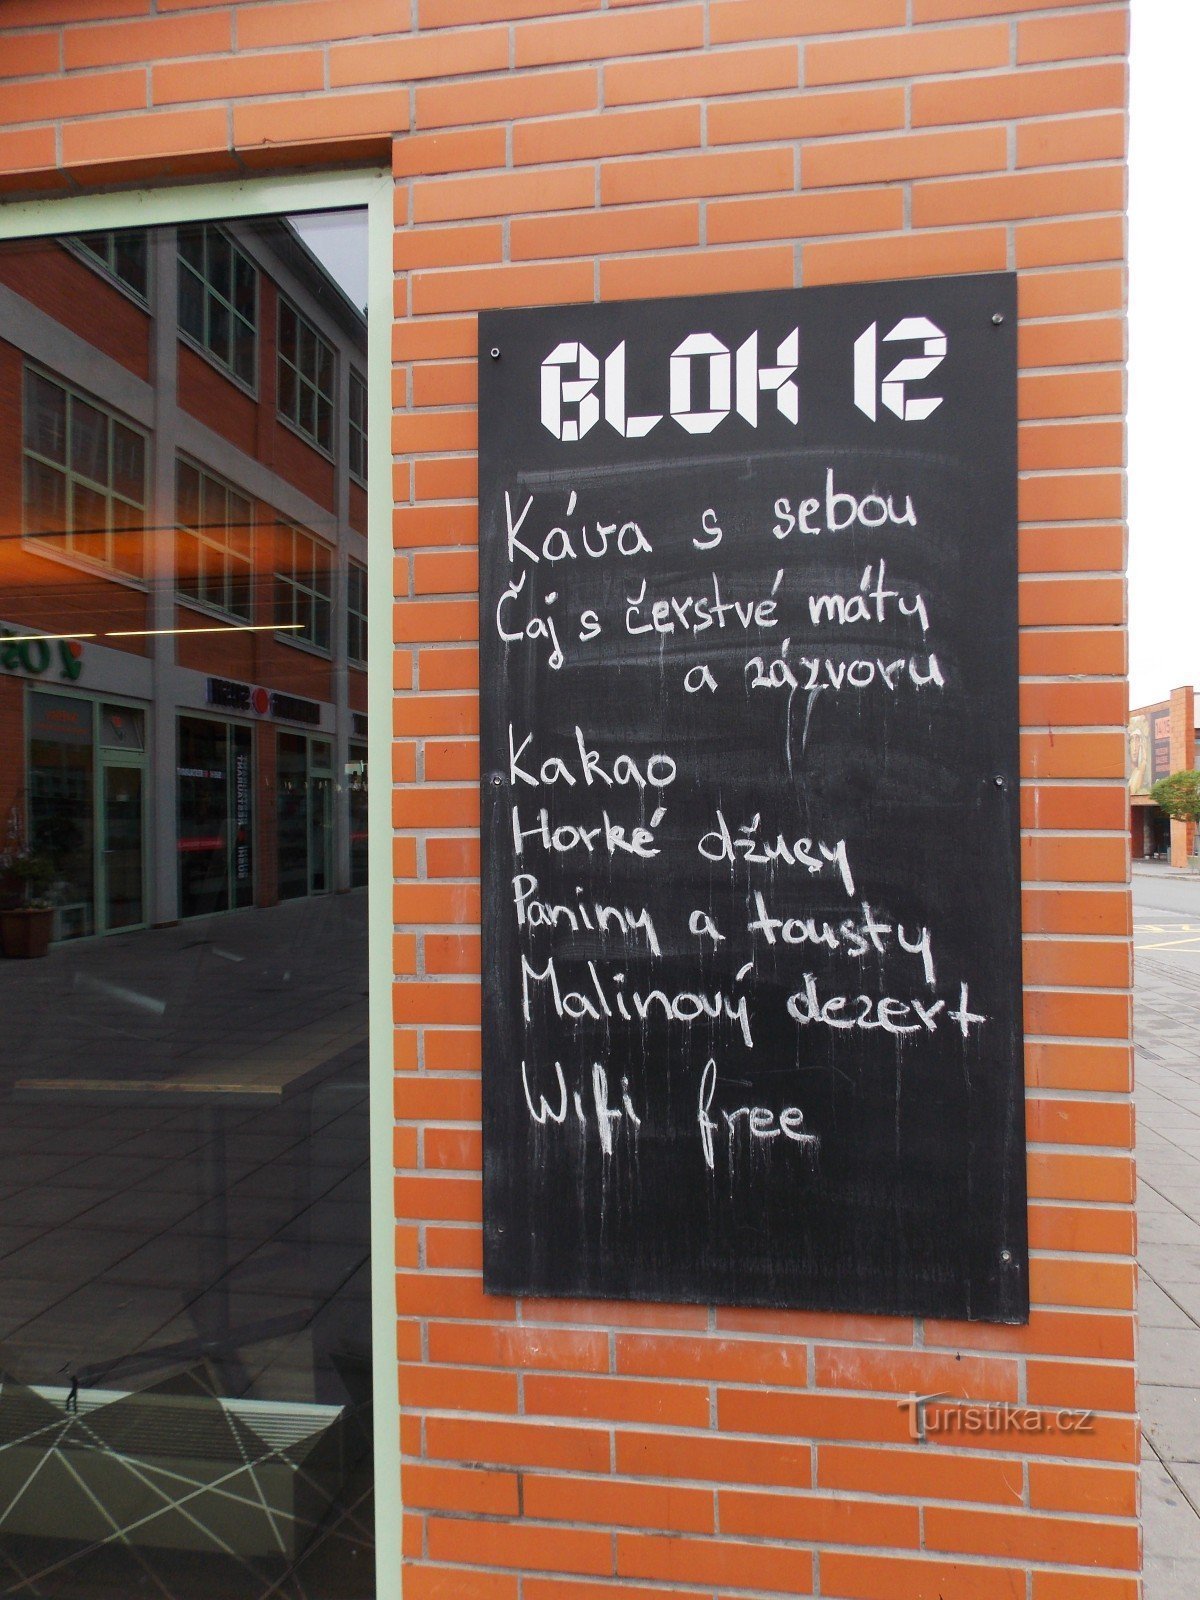 BLOK 12
Káva s sebou
Čaj s čerstvé máty
a zázvoru
Kakao
Horké džusy
Paniny a tousty
Malinový dezert
Wifi free
Turistika.cz